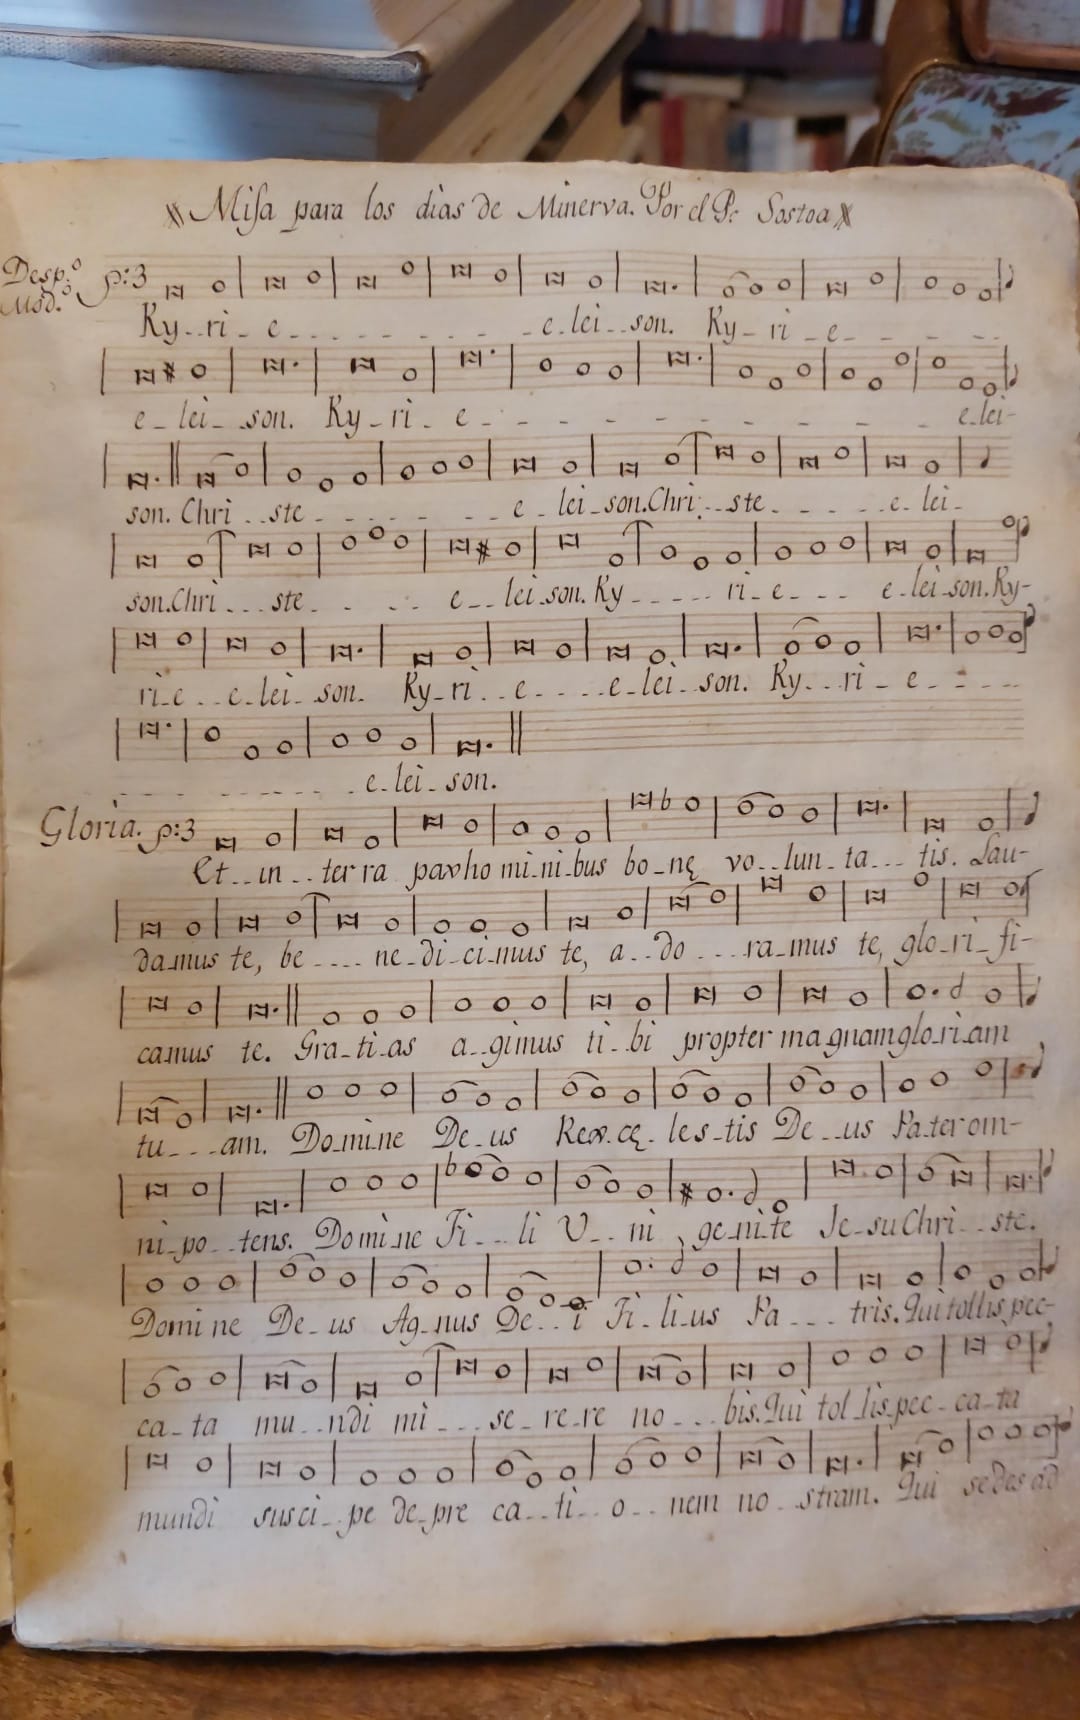 Misa para los dias de Minerva. Por el Pe Sostoa
Desp.o
Mod.o
Ky--ri-e--------e-lei--son. Ky-ri-e-----
e-lei--son. Ky-ri-e----------e-lei-
son. Chri--ste-------e-lei-son. Chri--ste-----e-lei-
son. Chri---ste----e--lei-son. Ky-----ri-e---e-lei-son. Ky-
ri-e--e-lei-son. Ky-ri--e----e-lei-son. Ky--ri-e----
--------e-lei-son.
Gloria.
Et--in--terra pax ho mi-ni-bus bo-nę vo--lun-ta---tis. Lau-
damus te, be----ne-di-ci-mus te, a--do---ra-mus te, glo-ri-fi-
camus te. Gra-ti-as a--gimus ti--bi propter magnam glo-ri-am
tu---am. Do-mi-ne De-us Rex cę-les-tis De--us Pater om-
ni-po--tens. Domi-ne Fi---li U--ni ge-ni-te Je-su Chri--ste.
Domi ne De-us Ag-nus De--i Fi-li-us Pa----tris. Qui tollis pec-
ca-ta mu--ndi mi----se-re-re no---bis. Qui tol-lis pec-ca-ta
mundi susci--pe de-pre ca--ti--o--nem no-stram. Qui sedes ad